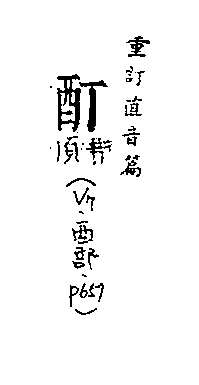 重訂直音篇
酊
頂
(V7、酉部、p657)